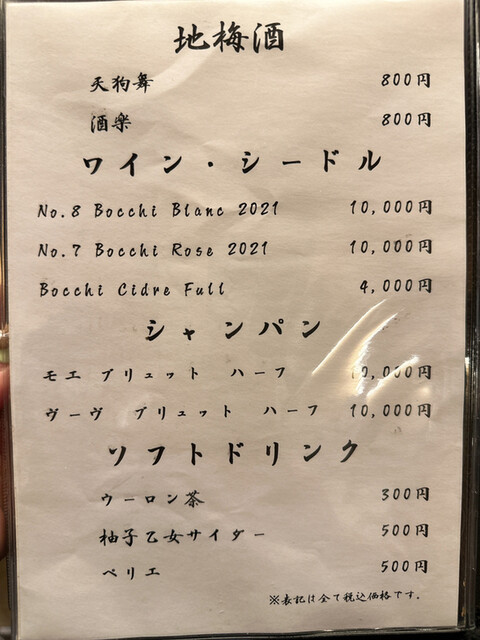 地梅酒
天狗舞 800円
酒楽 800円
ワイン・シードル
No.8 Bocchi Blanc 2021 10,000円
No.7 Bocchi Rose 2021 10,000円
Bocchi Cidre Full 4,000円
シャンパン
モエ ブリュット ハーフ 10,000円
ヴーヴ ブリュット ハーフ 10,000円
ソフトドリンク
ウーロン茶 300円
柚子乙女サイダー 500円
ペリエ 500円
※表記は全て税込価格です。